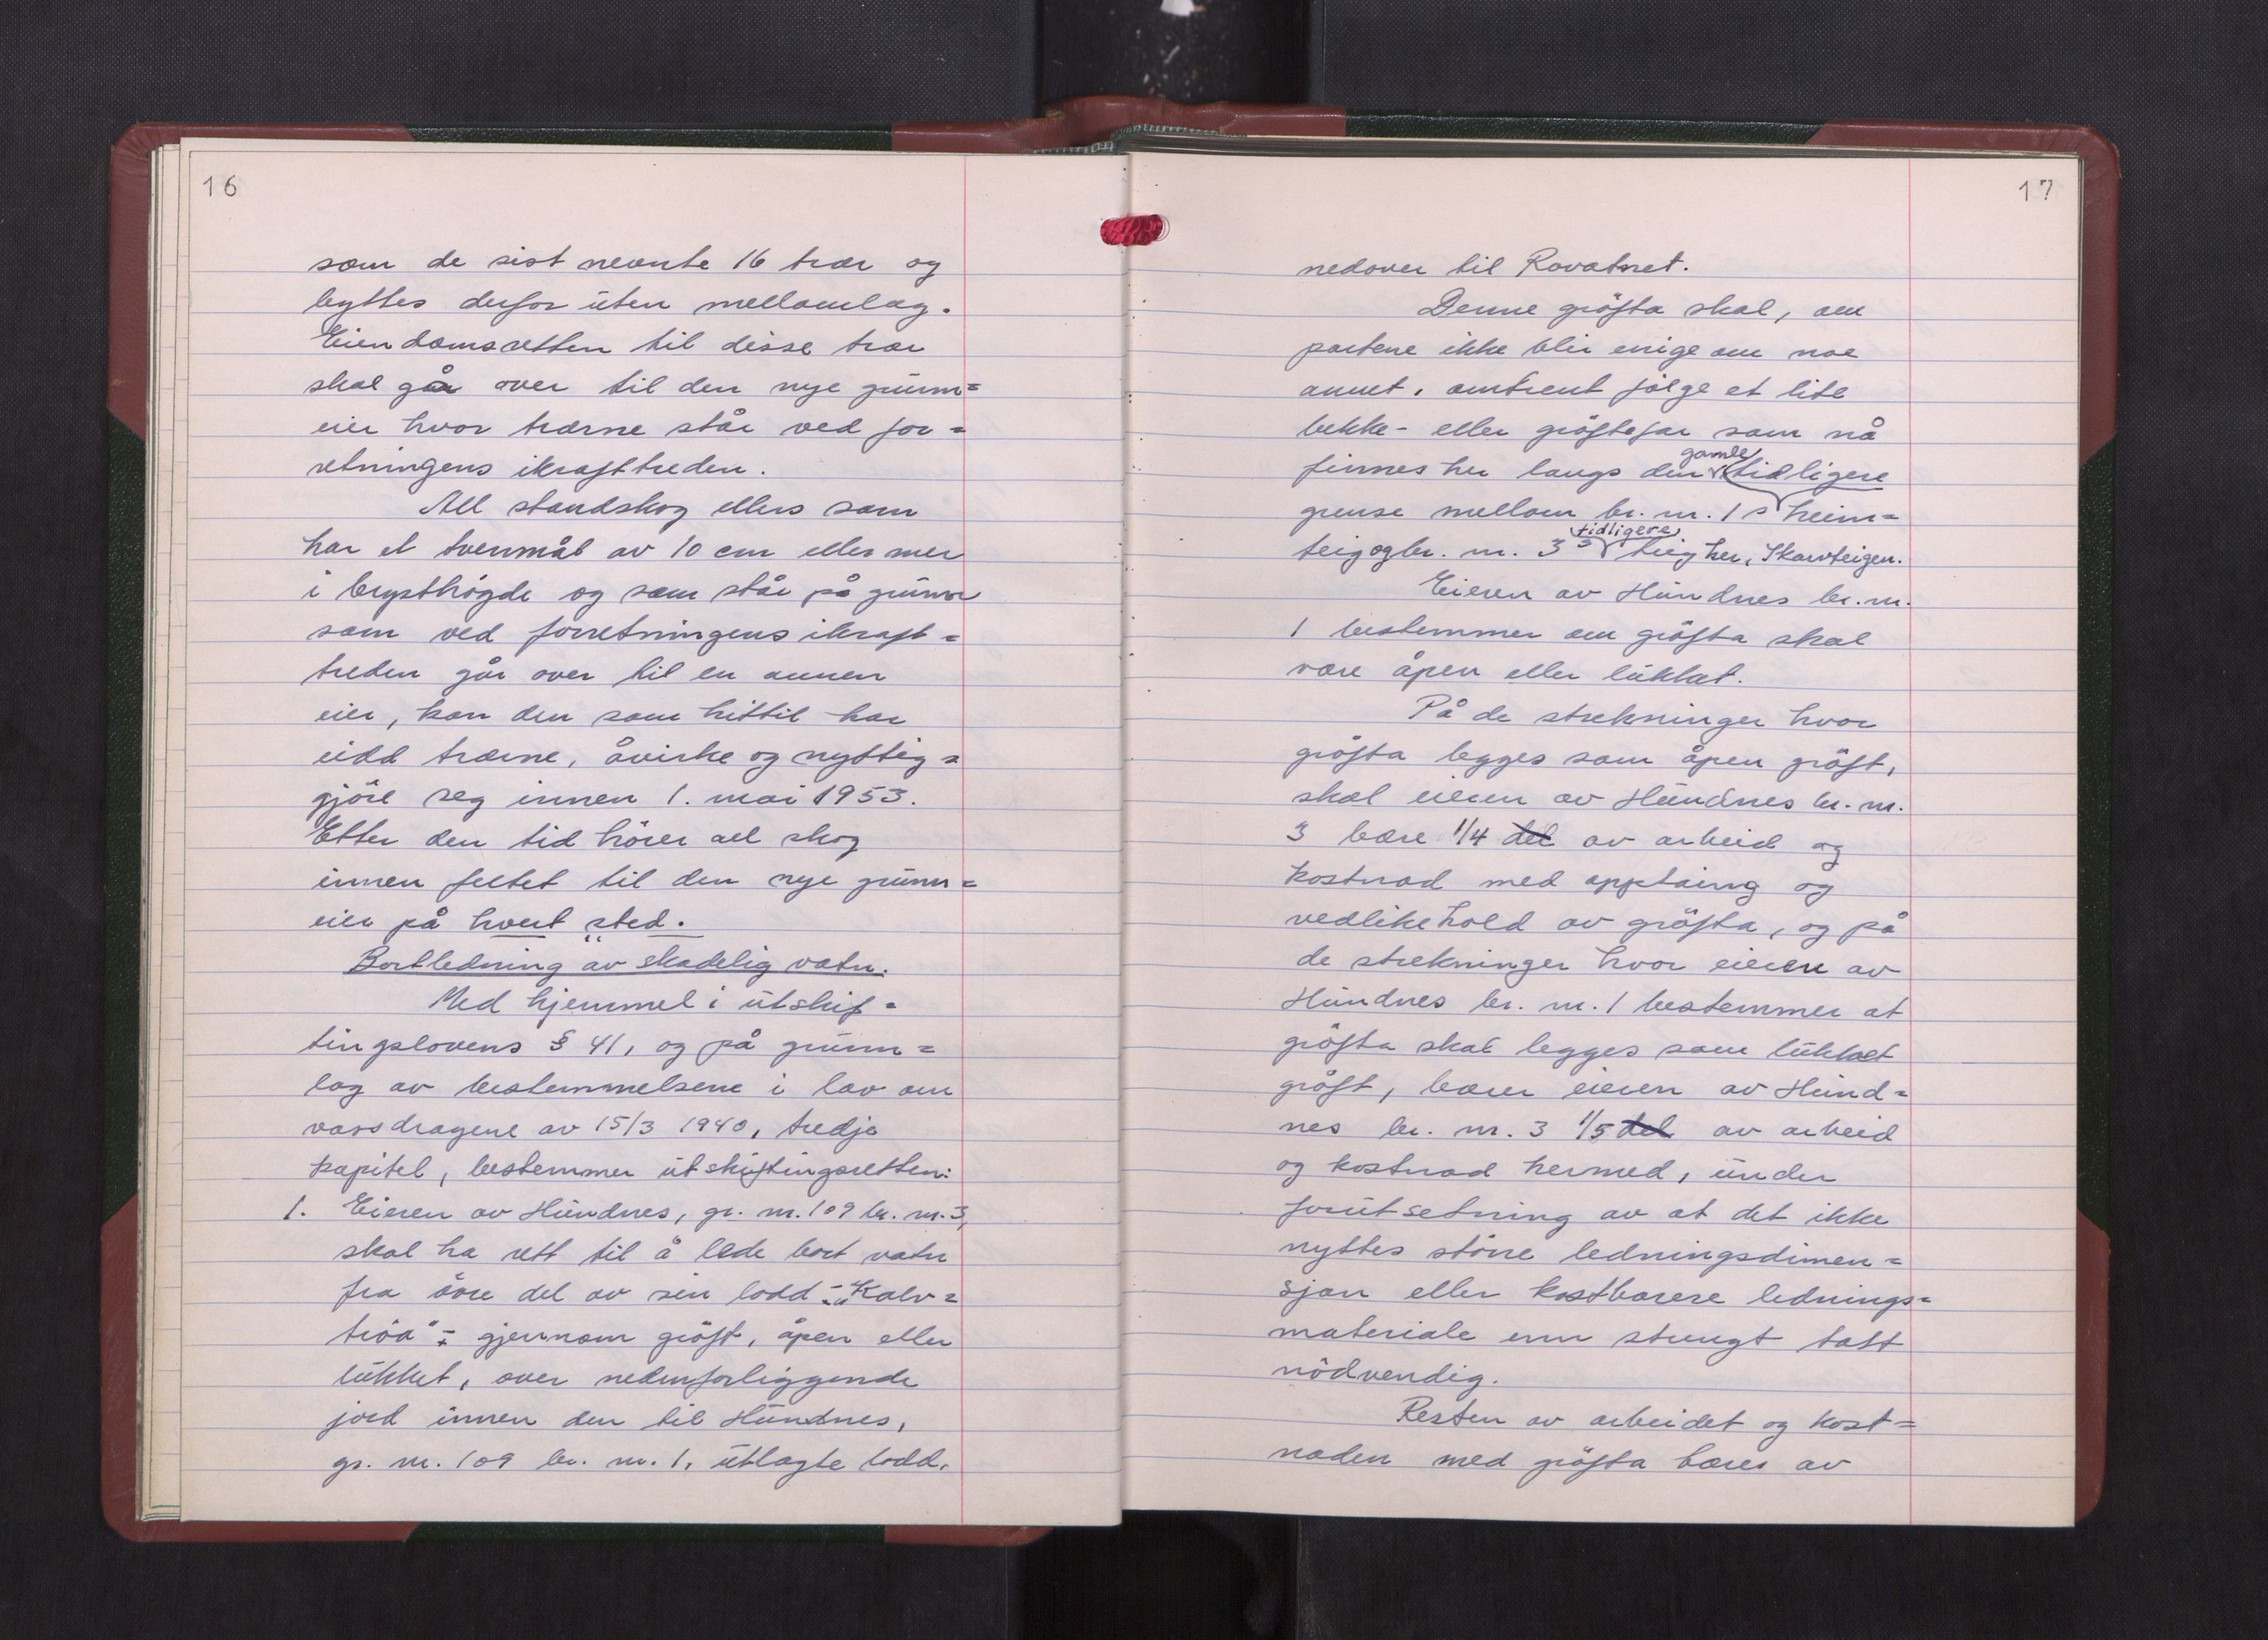 16
som de sist nevnte 16 trær og
byttes derfor uten mellomlag.
Eiendomsretten til disse trær
skal gå over til den nye grunn=
eier hvor trærne står ved for=
retningens ikrafttreden.
All standskog ellers som
har et tvermål av 10 cm eller mer
i brysthögde og som står på grunn
som ved forretningens ikraft=
treden går over til en annen
eier, kan den som hittil har
eidd trærne, åvirke og nyttig=
gjöre seg innen 1. mai 1953.
Etter den tid hörer all skog
innen feltet til den nye grunn=
eier på hvert sted.
Bortledning av skadelig vatn.
Med hjemmel i utskif=
tingslovens § 41, og på grunn=
lag av bestemmelsene i lov om
vassdragene av 15/3 1940, tredje
kapitel, bestemmer utskiftingsretten:
1. Eieren av Hundnes, gr. nr. 109 br. nr. 3,
skal ha rett til å lede bort vatn
fra övre del av sin lodd - "Kalv=
tröa" - gjennom gröft, åpen eller
lukket, over nedenforliggende
jord innen den til Hundnes,
gr. nr. 109 br. nr. 1, utlagte lodd,
17
nedover til Rovatnet.
Denne gröfta skal, om
partene ikke blir enige om noe
annet, omtrent fölge et lite
bekke- eller gröftefar som nå
gamle
finnes her langs den tidligere
grense mellom br. nr. 1 s heim=
tidligere
teig og br. nr. 3 s teig her, Skarvteigen.
Eieren av Hundnes br. nr.
1 bestemmer om gröfta skal
være åpen eller lukket.
På de strekninger hvor
gröfta legges som åpen gröft,
skal eieren av Hundnes br. nr.
3 bære 1/4 del av arbeid og
kostnad med opptaing og
vedlikehold av gröfta, og på
de strekninger hvor eieren av
Hundnes br. nr. 1 bestemmer at
gröfta skal legges som lukket
gröft, bærer eieren av Hund=
nes br. nr. 3 1/5 del av arbeid
og kostnad hermed, under
forutsetning av at det ikke
nyttes större ledningsdimen=
sjon eller kostbarere lednings=
materiale enn strengt tatt
nödvendig.
Resten av arbeidet og kost=
naden med gröfta bæres av